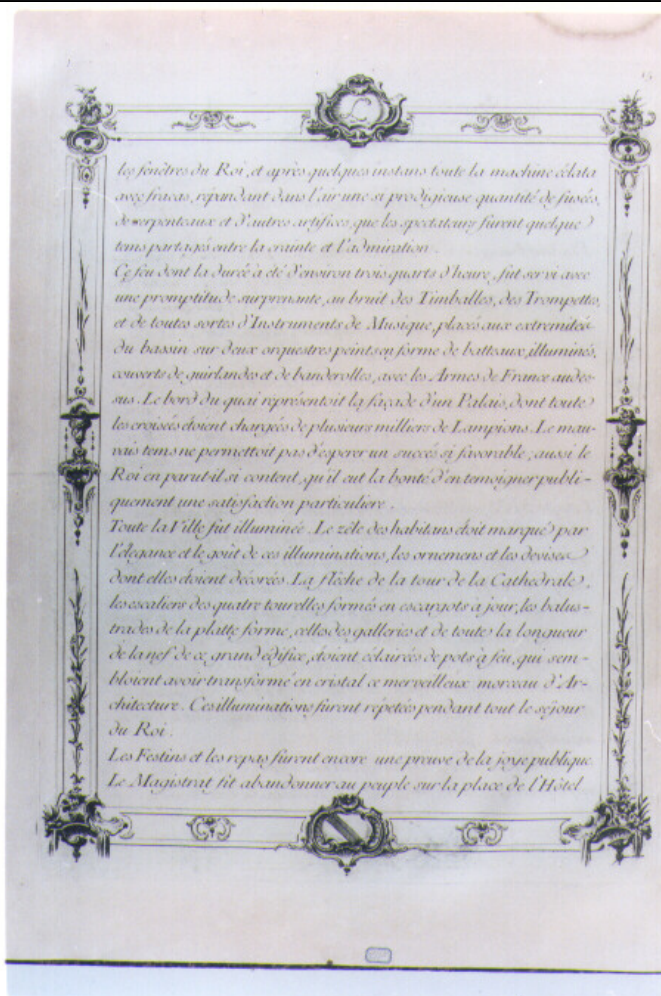 L
les fenêtres du Roi, et après quelques instans toute la machine éclata
avec fracas, répandant dans l'air une si prodigieuse quantité de fusées,
de serpenteaux et d'autres artifices, que les spectateurs furent quelque
tems partagés entre la crainte et l'admiration.
Ce feu dont la durée a été d'environ trois quarts d'heure, fut servi avec
une promptitude surprenante, au bruit des Timballes, des Trompettes,
et de toutes sortes d'Instruments de Musique, placés aux extremités
du bassin sur deux orquestres peints en forme de batteaux, illuminés,
couverts de guirlandes et de banderolles, avec les Armes de France audes-
sus. Le bord du quai représentoit la façade d'un Palais, dont toute
les croisées étoient chargées de plusieurs milliers de Lampions. Le mau-
vais tems ne permettoit pas d'esperer un succés si favorable, aussi le
Roi en parut-il si content, qu'il eut la bonté d'en temoigner publi-
quement une satisfaction particuliére.
Toute la Ville fut illuminée. Le zéle des habitans étoit marqué par
l'élegance et le goût de ces illuminations, les ornemens et les devises
dont elles étoient décorées. La flèche de la tour de la Cathedrale,
les escaliers des quatre tourelles formés en escargots à jour, les balus-
trades de la platte forme, celles des galleries et de toute la longueur
de la nef de ce grand édifice, étoient éclairées de pots à feu, qui sem-
bloient avoir transformé en cristal ce merveilleux morceau d'Ar-
chitecture. Ces illuminations furent répetées pendant tout le séjour
du Roi.
Les Festins et les repas furent encore une preuve de la joye publique.
Le Magistrat fit abandonner au peuple sur la place de l'Hôtel